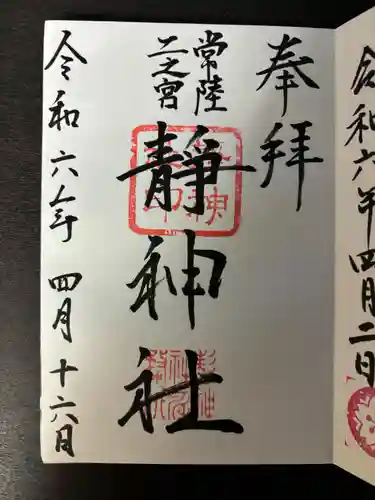 奉拝
常陸
二之宮
靜神社
令和六年 四月十六日
令和六年四月二日